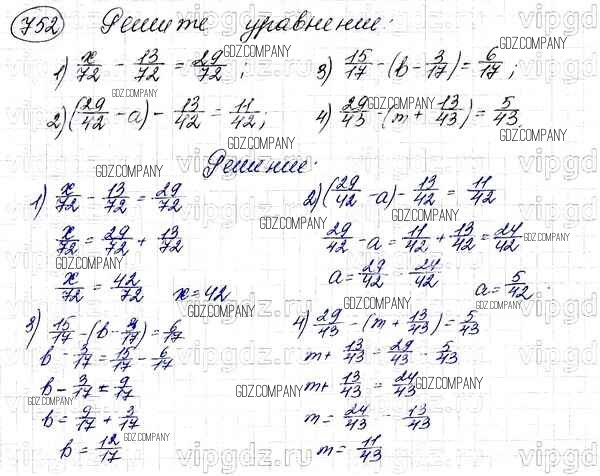 752 Решите уравнение:
1) x/72 - 13/72 = 29/72; 3) 15/17 - (b - 3/17) = 6/17;
2) (29/42 - a) - 13/42 = 11/42; 4) 29/43 - (m + 13/43) = 5/43
Решение:
1) x/72 - 13/72 = 29/72
x/72 = 29/72 + 13/72
x/72 = 42/72 x = 42
2) (29/42 - a) - 13/42 = 11/42
29/42 - a = 11/42 + 13/42 = 24/42
a = 29/42 - 24/42
a = 5/42
3) 15/17 - (b - 3/17) = 6/17
b - 3/17 = 15/17 - 6/17
b - 3/17 = 9/17
b = 9/17 + 3/17
b = 12/17
4) 29/43 - (m + 13/43) = 5/43
m + 13/43 = 29/43 - 5/43
m + 13/43 = 24/43
m = 24/43 - 13/43
m = 11/43
GDZ.COMPANY
vipgdz.ru